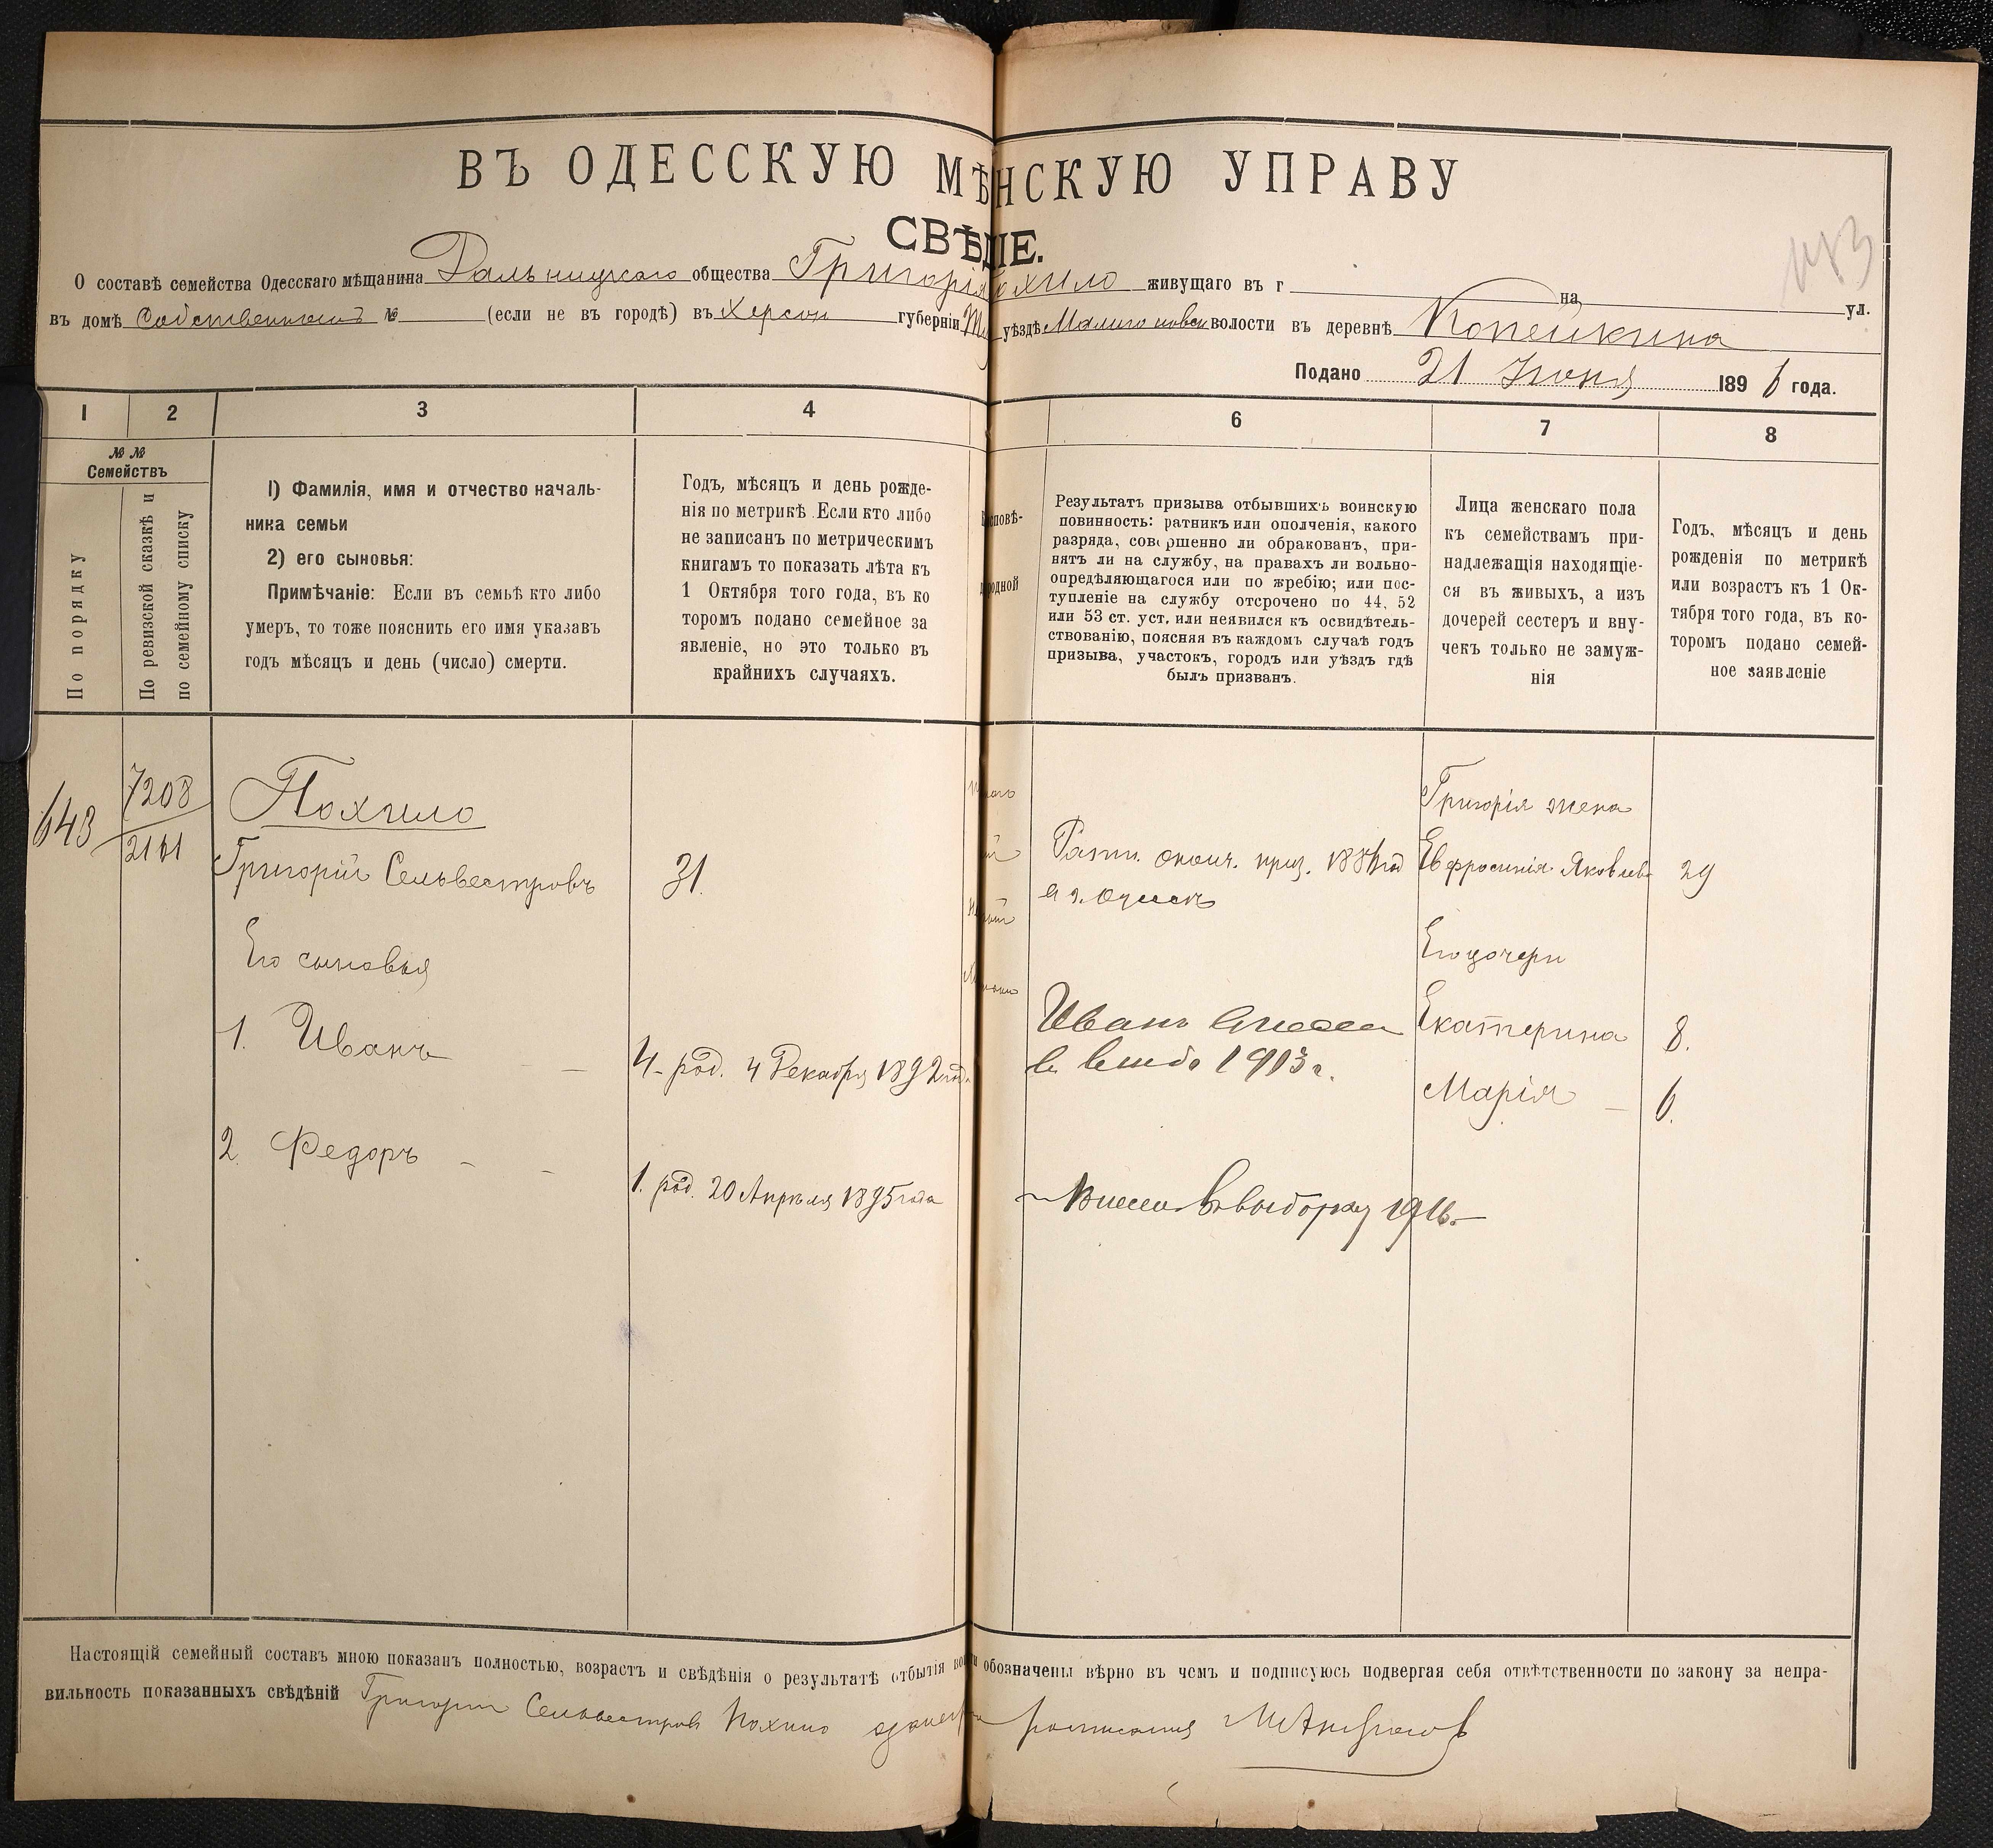 ВЪ ОДЕССКУЮ МѢНСКУЮ УПРАВУ
СВѢ ІЕ.
О составѣ семейства Одесскаго мѣщанина Дальницкаго общества Григорія охило живущаго въ г на ул.
въ домѣ Собственномъ № (если не въ городѣ) въ Херсон губерніи уѣздѣ волости въ деревнѣ Копейкина
Подано 21 Іюня 1896 года.
1 2 3 4 6 7 8
№№
Семействъ
По порядку
По ревизской сказкѣ и
по семейному списку
1) Фамилія, имя и отчество началь-
ника семьи
2) его сыновья:
Примѣчаніе: Если въ семьѣ кто либо
умеръ, то тоже пояснить его имя указавъ
годъ мѣсяцъ и день (число) смерти.
Годъ, мѣсяцъ и день рожде-
нія по метрикѣ. Если кто либо
не записанъ по метрическимъ
книгамъ то показать лѣта къ
1 Октября того года, въ ко
торомъ подано семейное за
явленіе, но это только въ
крайнихъ случаяхъ.
исповѣ-
родной
Результатъ призыва отбывшихъ воинскую
повинность: ратникъ или ополченія, какого
разряда, совершенно ли обракованъ, при-
нятъ ли на службу, на правахъ ли вольно-
опредѣляющагося или по жребію; или пос-
тупленіе на службу отсрочено по 44, 52
или 53 ст. уст. или неявился къ освидѣтель-
ствованію, поясняя въ каждомъ случаѣ годъ
призыва, участокъ, городъ или уѣздъ гдѣ
былъ призванъ.
Лица женскаго пола
къ семействамъ при-
надлежащія находящіе-
ся въ живыхъ, а изъ
дочерей сестеръ и вну-
чекъ только не замуж-
нія
Годъ, мѣсяцъ и день
рожденія по метрикѣ
или возрастъ къ 1 Ок-
тября того года, въ ко-
торомъ подано семей-
ное заявленіе
643
7208
2161
Похило
Григорій Сельвестровъ 31.
Его сыновья
1. Иванъ — — 4. род. 4 Декабря 1892 год.
2. Федоръ — — 1. род. 20 Апрѣля 1895 года
Ратн. ополч. приз.
г. Одесск
Иванъ
1913 г.
выборку 1916.
Григорія жена
Евфросинія Яковлев 29
Его дочери
Екатерина 8.
Марія — 6.
Настоящій семейный составъ мною показанъ полностью, возрастъ и свѣдѣнія о результатѣ отбытія обозначены вѣрно въ чемъ и подписуюсь подвергая себя отвѣтственности по закону за непра-
вильность показанныхъ свѣдѣній Григорій Сельвестровъ Похило